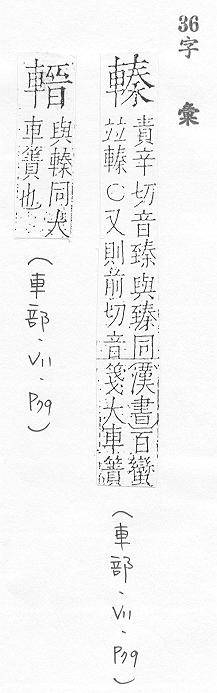 36字彙
轃
責辛切音臻與臻同漢書百蠻
竝轃○又則前切音箋大車簀
(車部·VII·P79)
與轃同大
車簀也
(車部·VII·P79)